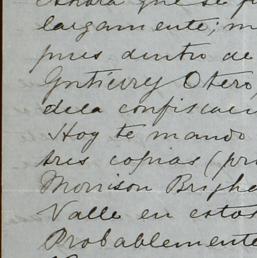 largamente; m
pues dentro de
Gutierrez Otero
de la confiscac
Hoy te mando
tres copias (pri
Morrison Brigha
Valle en estos
Probablemente